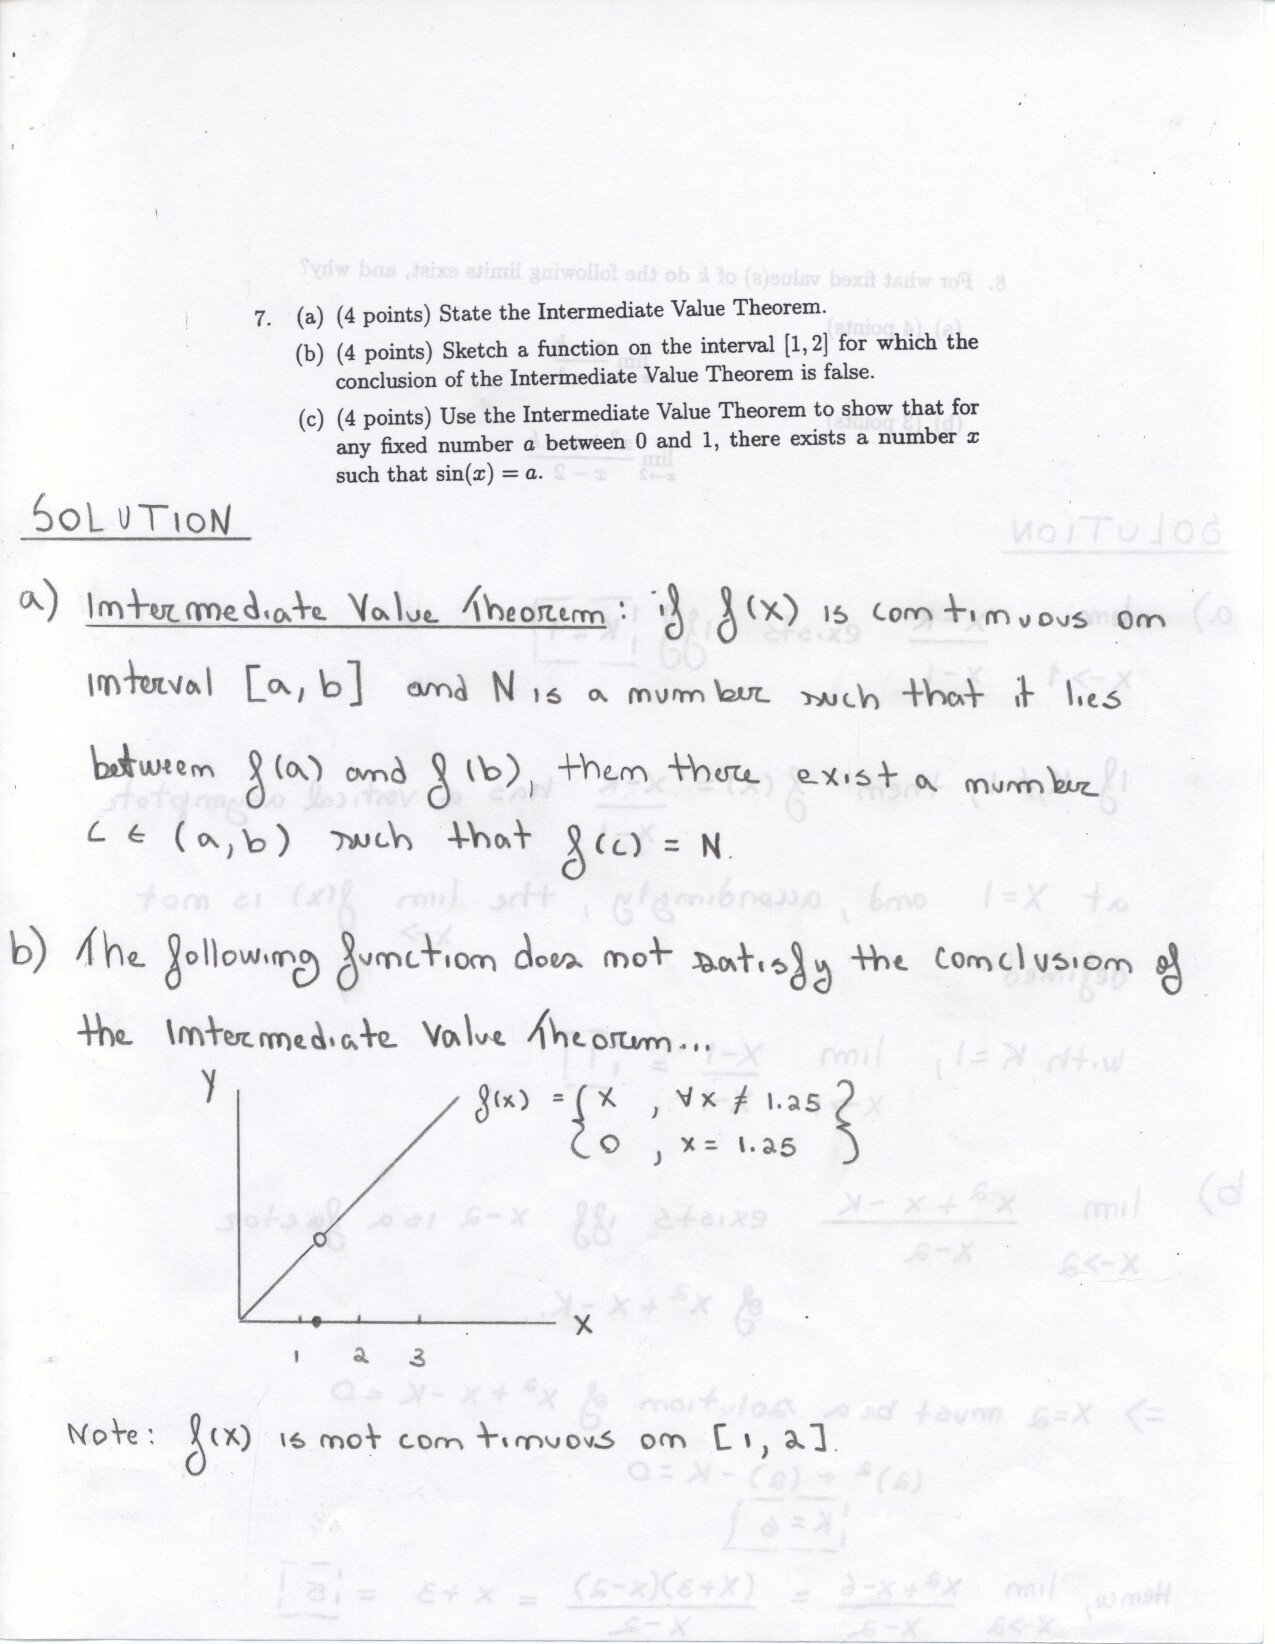 7. (a) (4 points) State the Intermediate Value Theorem.
(b) (4 points) Sketch a function on the interval [1, 2] for which the
conclusion of the Intermediate Value Theorem is false.
(c) (4 points) Use the Intermediate Value Theorem to show that for
any fixed number a between 0 and 1, there exists a number x
such that sin(x) = a.
SOLUTION
a) Intermediate Value Theorem: if f(x) is continuous on
interval [a, b] and N is a number such that it lies
between f(a) and f(b), then there exist a number
c ∈ (a, b) such that f(c) = N.
b) The following function does not satisfy the conclusion of
the Intermediate Value Theorem...
Y
f(x) = { x , ∀x ≠ 1.25 }
0 , x = 1.25
X
1 2 3
Note: f(x) is not continuous on [1, 2].